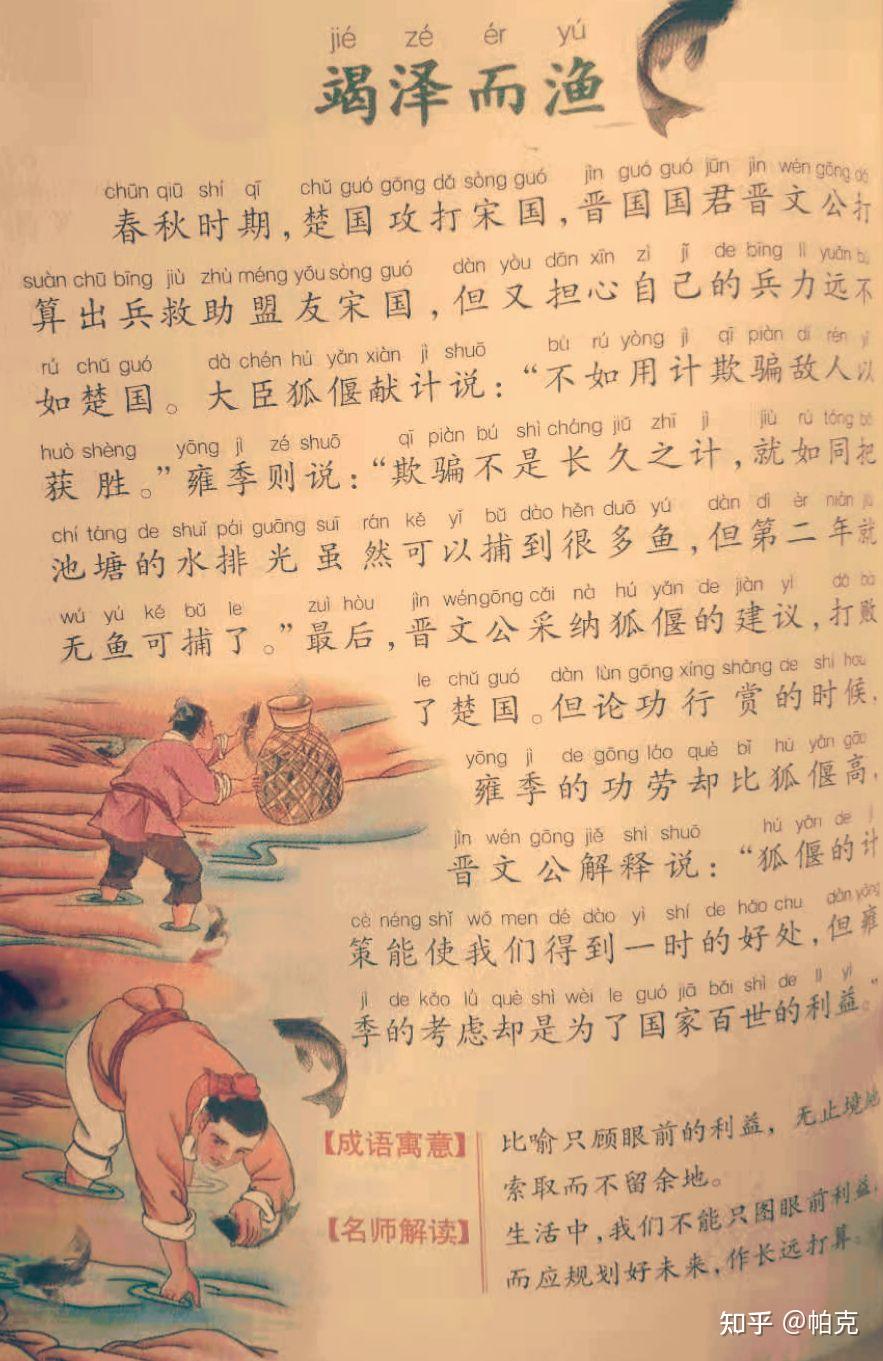 jié zé ér yú
竭泽而渔
chūn qiū shí qī chǔ guó gōng dǎ sòng guó jìn guó guó jūn jìn wén gōng dǎ
春秋时期，楚国攻打宋国，晋国国君晋文公打
suàn chū bīng jiù zhù méng yǒu sòng guó dàn yòu dān xīn zì jǐ de bīng lì yuǎn bù
算出兵救助盟友宋国，但又担心自己的兵力远不
rú chǔ guó dà chén hú yǎn xiàn jì shuō bù rú yòng jì qī piàn dí rén yǐ
如楚国。大臣狐偃献计说：“不如用计欺骗敌人以
huò shèng yōng jì zé shuō qī piàn bú shì cháng jiǔ zhī jì jiù rú tóng bǎ
获胜。”雍季则说：“欺骗不是长久之计，就如同把
chí táng de shuǐ pái guāng suī rán kě yǐ bǔ dào hěn duō yú dàn dì èr nián jiù
池塘的水排光虽然可以捕到很多鱼，但第二年就
wú yú kě bǔ le zuì hòu jìn wén gōng cǎi nà hú yǎn de jiàn yì dǎ bài
无鱼可捕了。”最后，晋文公采纳狐偃的建议，打败
le chǔ guó dàn lùn gōng xíng shǎng de shí hou
了楚国。但论功行赏的时候，
yōng jì de gōng láo què bǐ hú yǎn gāo
雍季的功劳却比狐偃高，
jìn wén gōng jiě shì shuō hú yǎn de jì
晋文公解释说：“狐偃的计
cè néng shǐ wǒ men dé dào yì shí de hǎo chu dàn yōng
策能使我们得到一时的好处，但雍
jì de kǎo lǜ què shì wèi le guó jiā bǎi shì de lì yì
季的考虑却是为了国家百世的利益。”
【成语寓意】 比喻只顾眼前的利益，无止境地
索取而不留余地。
【名师解读】 生活中，我们不能只图眼前利益，
而应规划好未来，作长远打算。
知乎 @帕克